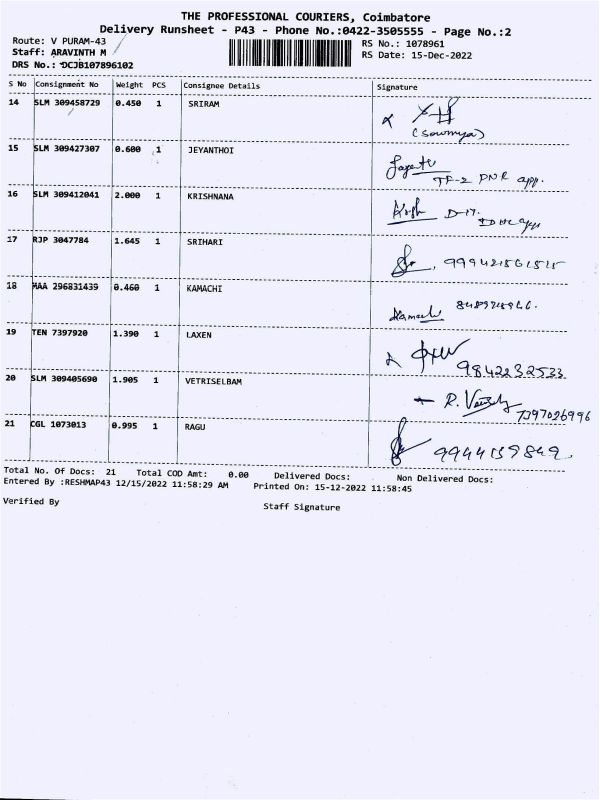 THE PROFESSIONAL COURIERS, Coimbatore
Delivery Runsheet - P43 - Phone No.:0422-3505555 - Page No.:2
Route: V PURAM-43 RS No.: 1078961
Staff: ARAVINTH M RS Date: 15-Dec-2022
DRS No.: DCJB107896102
S No Consignment No Weight PCS Consignee Details Signature
14 SLM 309458729 0.450 1 SRIRAM
(Sowmya)
15 SLM 309427307 0.600 1 JEYANTHOI
TF-2 PNR app.
16 SLM 309412041 2.000 1 KRISHNANA
D-17.
17 RJP 3047784 1.645 1 SRIHARI
18 MAA 296831439 0.460 1 KAMACHI
19 TEN 7397920 1.390 1 LAXEN
9842232533
20 SLM 309405690 1.905 1 VETRISELBAM
7397026996
21 CGL 1073013 0.995 1 RAGU
9944159849
Total No. Of Docs: 21 Total COD Amt: 0.00 Delivered Docs: Non Delivered Docs:
Entered By :RESHMAP43 12/15/2022 11:58:29 AM Printed On: 15-12-2022 11:58:45
Verified By Staff Signature